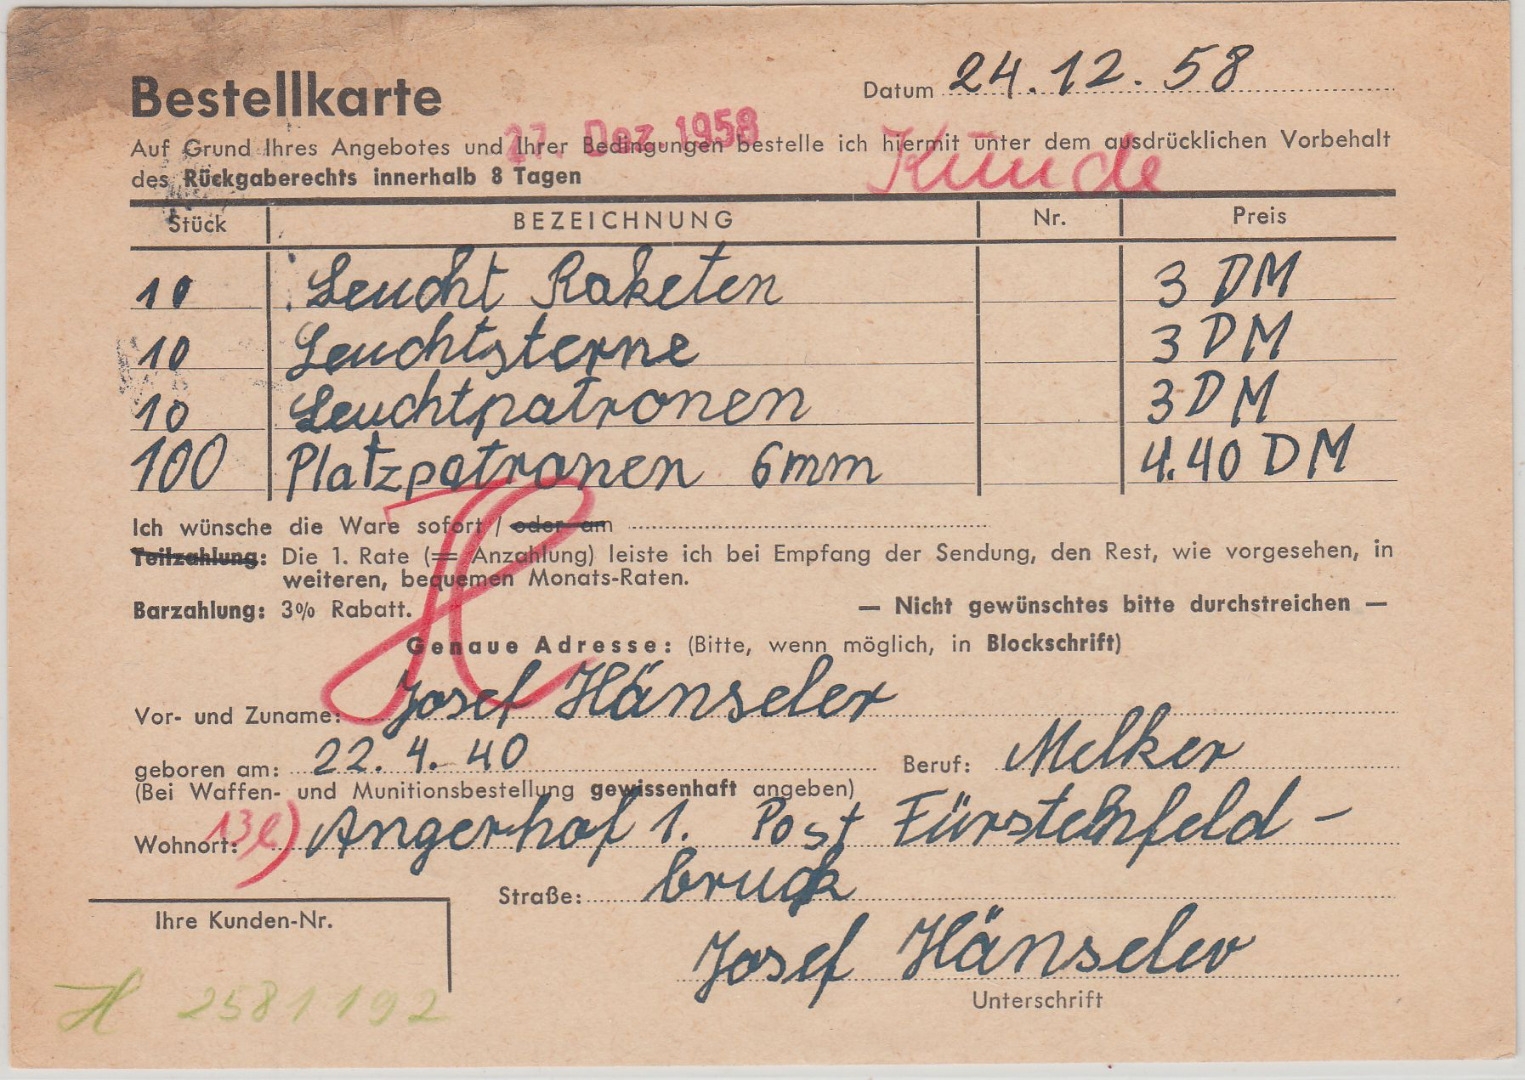 Bestellkarte
Datum 24.12.58
27. Dez. 1958
Auf Grund Ihres Angebotes und Ihrer Bedingungen bestelle ich hiermit unter dem ausdrücklichen Vorbehalt
des Rückgaberechts innerhalb 8 Tagen
Kunde
Stück BEZEICHNUNG Nr. Preis
10 Leucht Raketen 3 DM
10 Leuchtsterne 3 DM
10 Leuchtpatronen 3 DM
100 Platzpatronen 6mm 4.40 DM
Ich wünsche die Ware sofort / oder am
Teilzahlung: Die 1. Rate (= Anzahlung) leiste ich bei Empfang der Sendung, den Rest, wie vorgesehen, in
weiteren, bequemen Monats-Raten.
Barzahlung: 3% Rabatt. — Nicht gewünschtes bitte durchstreichen —
Genaue Adresse: (Bitte, wenn möglich, in Blockschrift)
Vor- und Zuname: Josef Hänseler
geboren am: 22.4.40 Beruf: Melker
(Bei Waffen- und Munitionsbestellung gewissenhaft angeben)
Wohnort: Angerhof 1. Post Fürstenfeld-
Straße: bruck
Ihre Kunden-Nr.
Josef Hänseler
Unterschrift
H 2581192